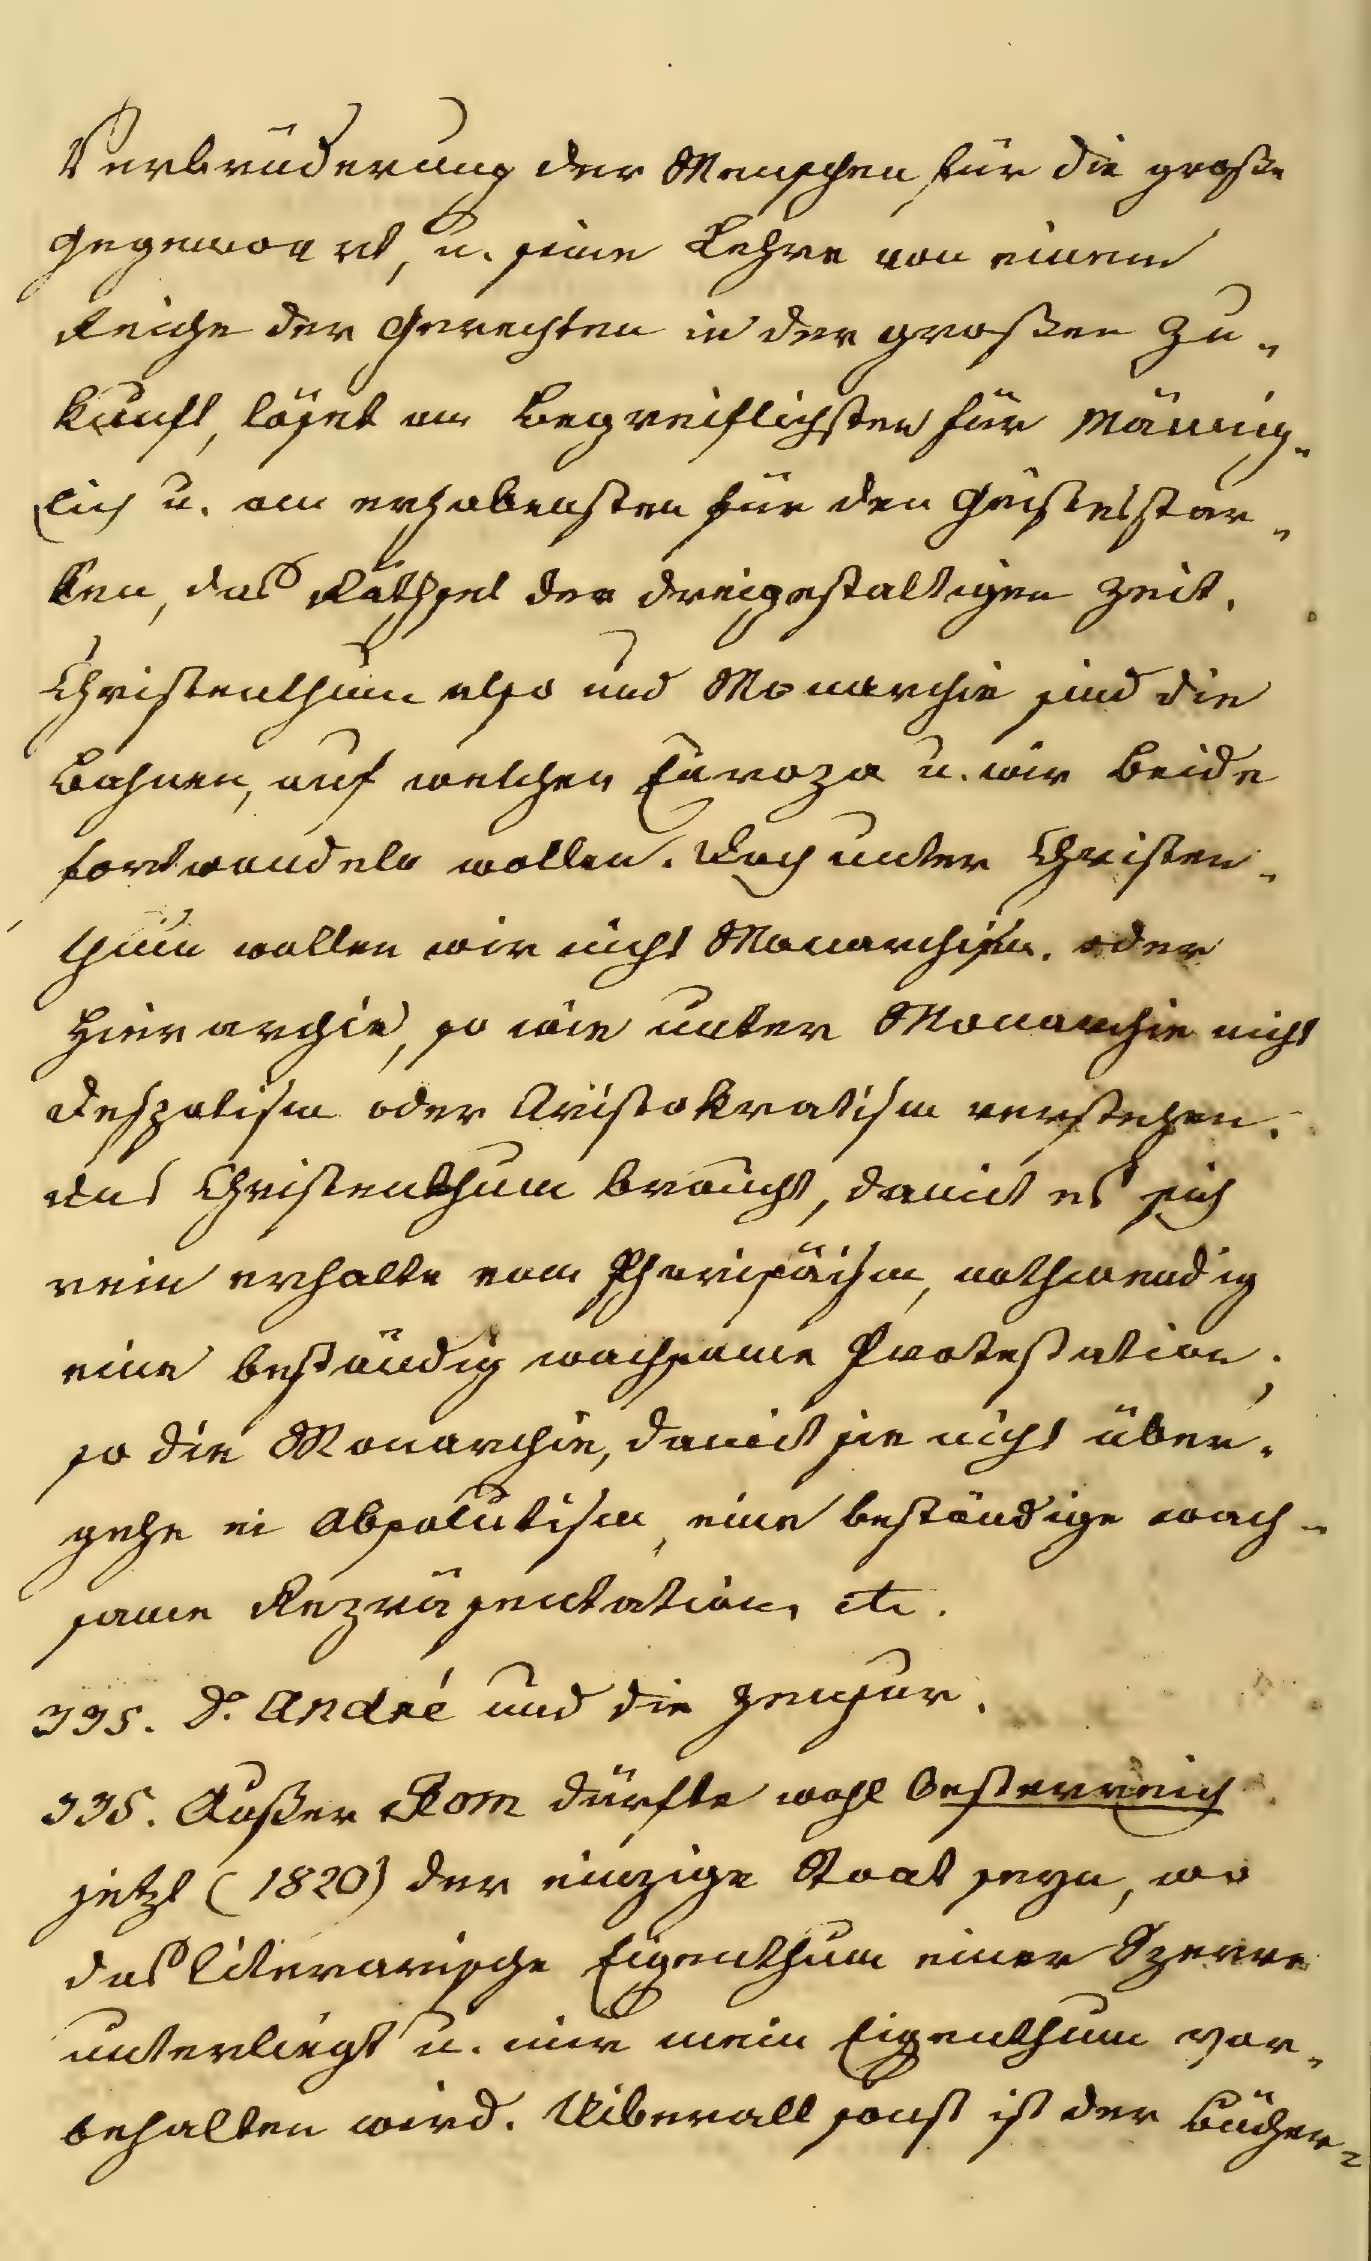 Verbrüderung der Menschen für die große
Gegenwart, u. seine Lehre von einem
Reiche der Gerechten in der großen Zu-
kunft, löset am begreiflichsten für männig-
lich u. am erhabensten für den Geistesstar-
ken, das Räthsel der dreigestaltigen Zeit.
Christenthum also und Monarchie sind die
Bahnen, auf welchen Europa u. wir beide
fortwandeln wollen. Doch unter Christen-
thum wollen wir nicht oder
Hierarchie, so wie unter Monarchie nicht
Despotism oder Aristokratism verstehen.
Das Christenthum braucht, damit es sich
rein erhalte vom Pharisäism, nothwendig
eine beständig wachsame Protestation;
so die Monarchie, damit sie nicht über-
gehe in Absolutism, eine beständige wach-
same Repräsentation, etc.
335. D. André und die Zensur.
335. Außer Rom dürfte wohl Oesterreich
jetzt (1820) der einzige Staat seyn, wo
das literarische Eigenthum einer Sperre
unterliegt u. mir mein Eigenthum vor-
behalten wird. Uiberall sonst ist der Bücher-